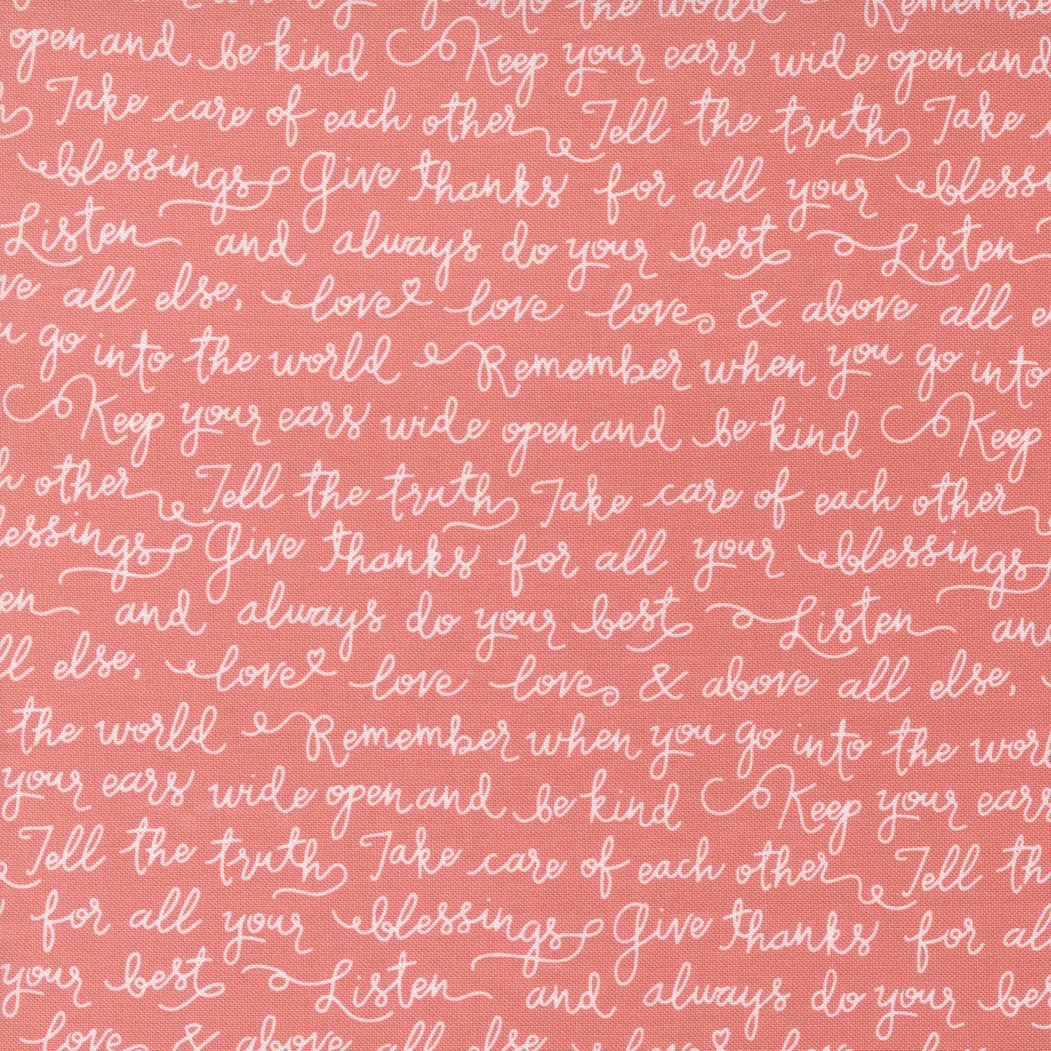 go into the world Remember
open and be kind Keep your ears wide open and
Take care of each other Tell the truth Take
blessings Give thanks for all your bless
Listen and always do your best Listen
ve all else, love love love & above all e
u go into the world Remember when you go into
Keep your ears wide open and be kind Keep
h other Tell the truth Take care of each other
essings Give thanks for all your blessings
en and always do your best Listen an
ll else, love love love & above all else,
the world Remember when you go into the worl
your ears wide open and be kind Keep your ears
Tell the truth Take care of each other Tell th
for all your blessings Give thanks for al
your best Listen and always do your bes
love & above all else love